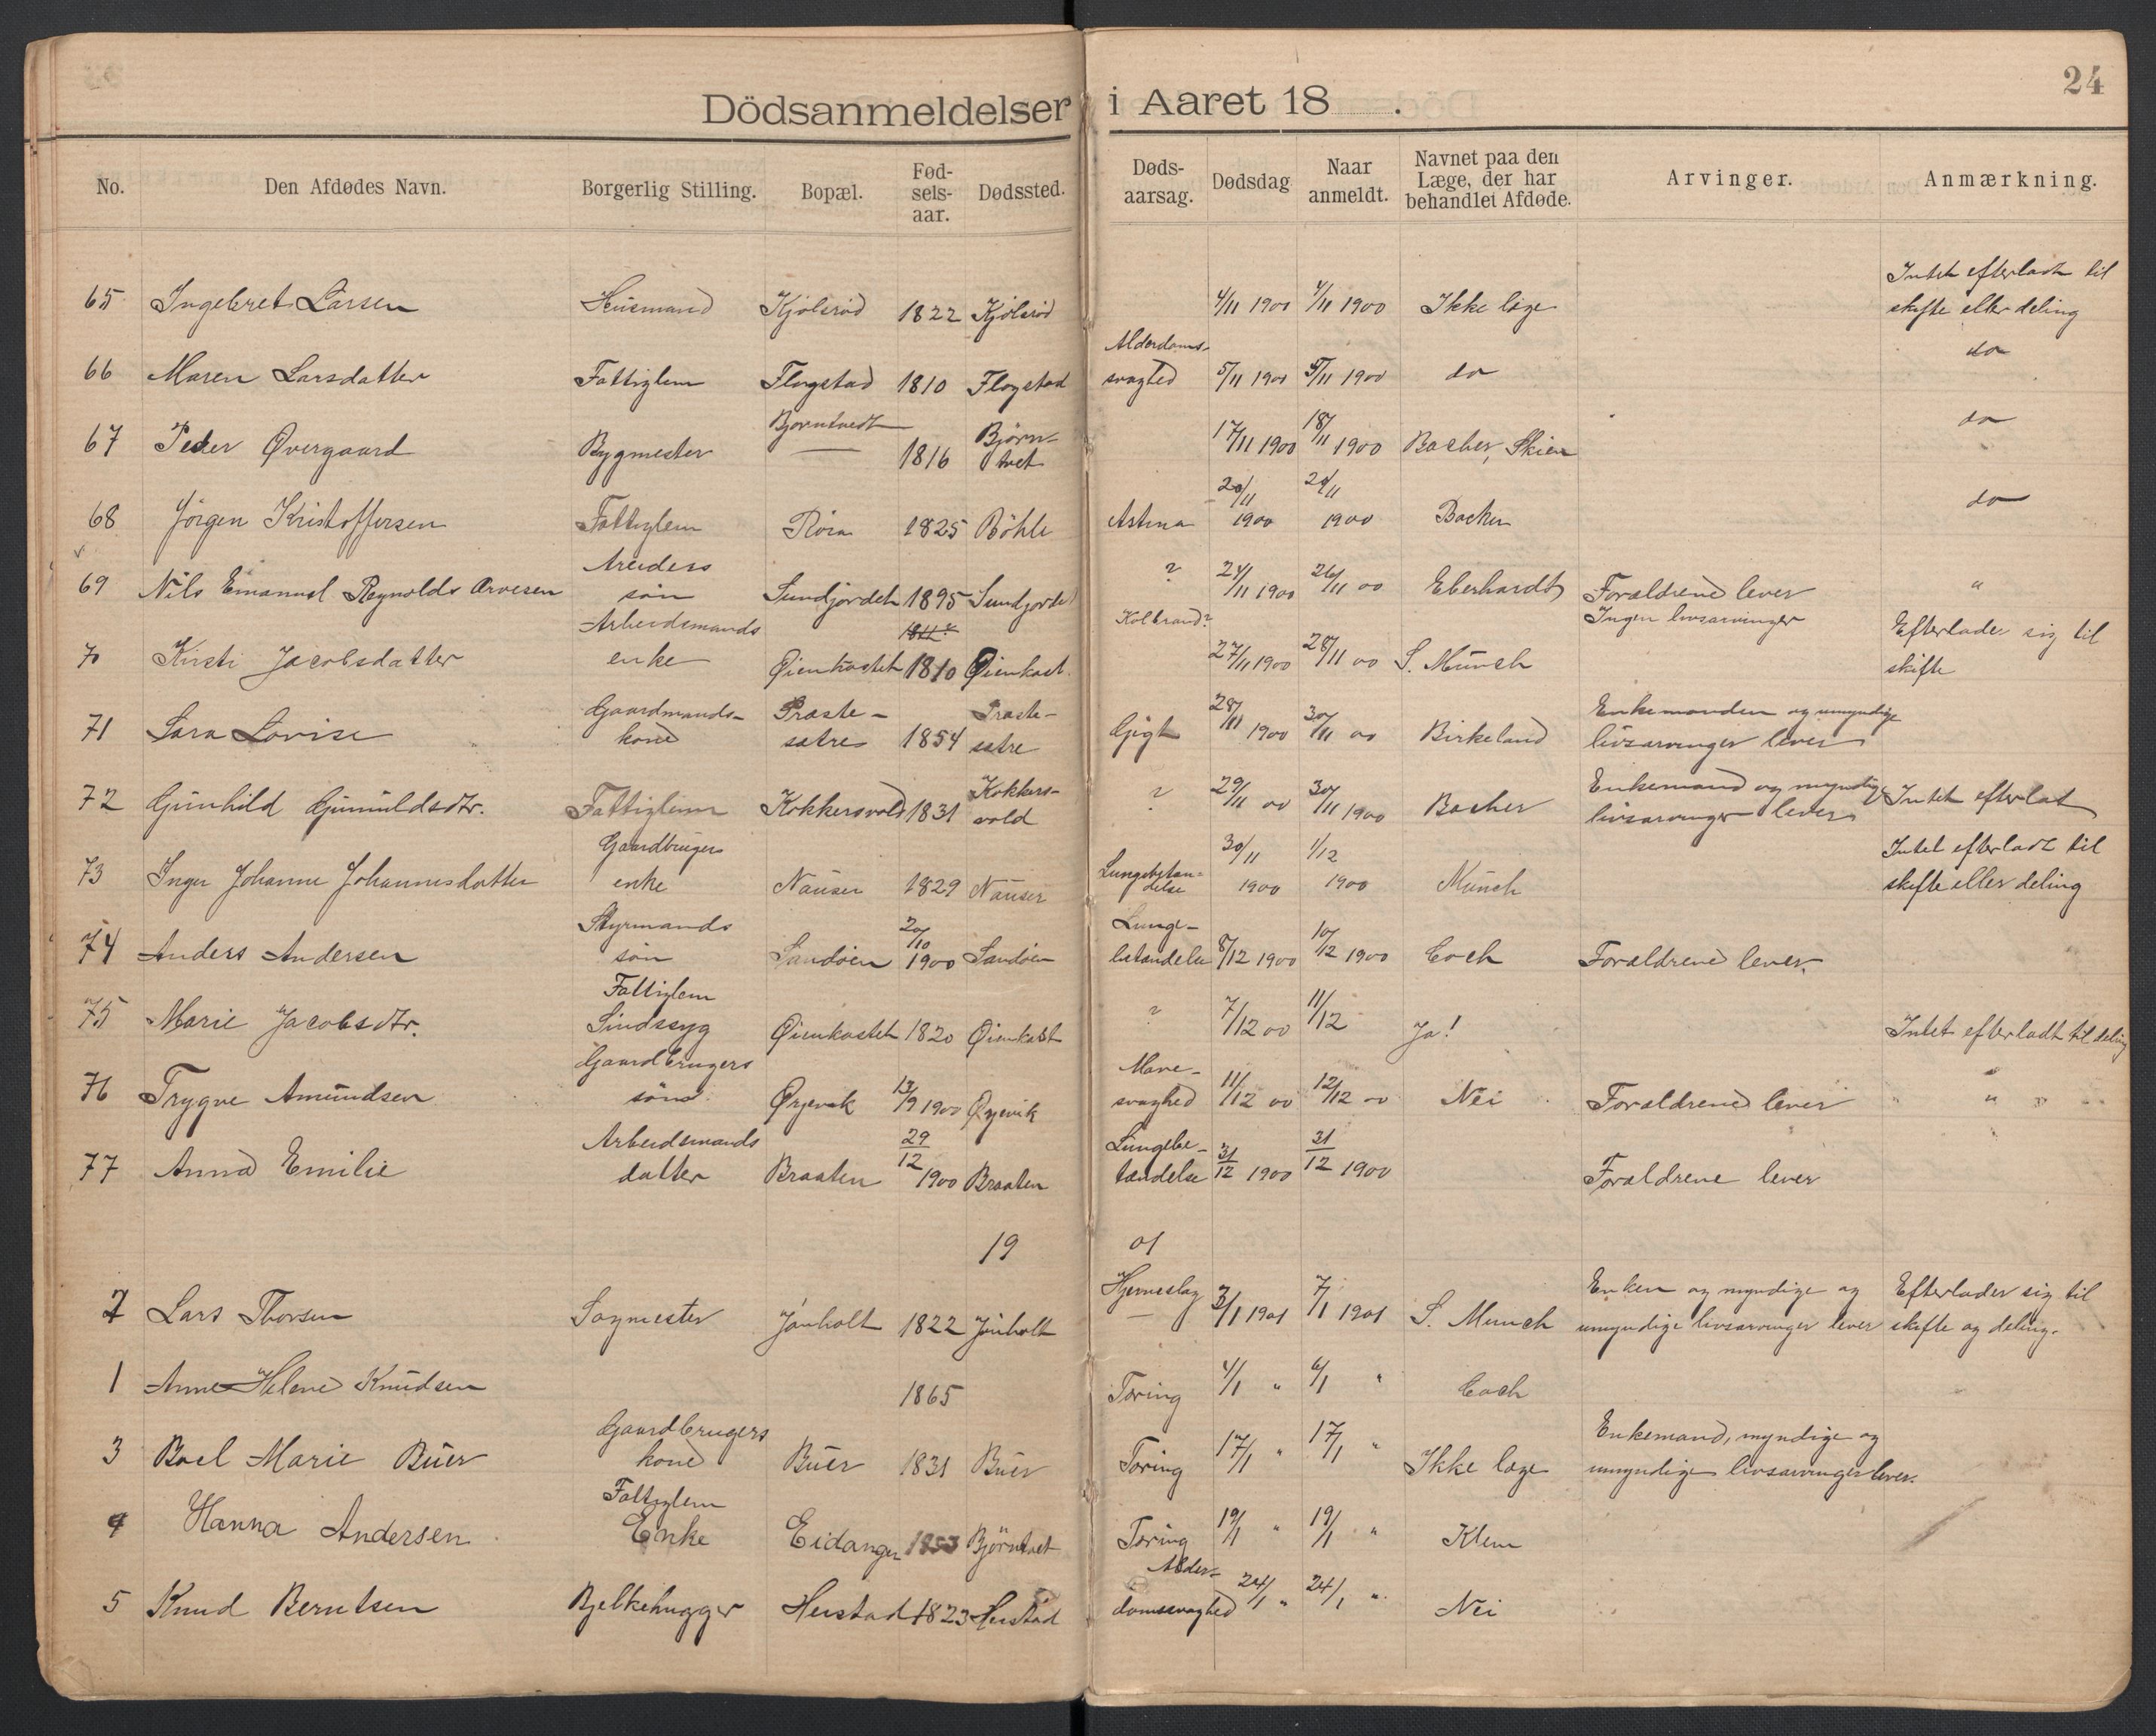 24
Dödsanmeldelser i Aaret 18 .
No. Den Afdødes Navn. Borgerlig Stilling. Bopæl. Fød-sels-aar. Dødssted. Døds-aarsag. Dødsdag Naar anmeldt. Navnet paa den Læge, der har behandlet Afdøde. Arvinger. Anmærkning.
65 Ingebret Larsen Husmand Kjølsrød 1822 Kjølsrød 4/11 1900 4/11 1900 Ikke læge Intet efterladt til skifte eller deling
66 Maren Larsdatter Fattiglem Flogstad 1810 Flogstad Alderdoms-svaghed 5/11 1900 5/11 1900 do do
67 Peder Øvergaard Bygmester Bjørntvedt 1816 Bjørn-tvet 17/11 1900 18/11 1900 Backer, Skien do
68 Jörgen Kristoffersen Fattiglem Röra 1825 Böhle Astma 20/11 1900 20/11 1900 Backer do
69 Nils Emanuel Reynolds Arvesen Arbeiders sön Sundjordet 1895 Sundjordet ? 24/11 1900 26/11 00 Eberhardt Forældrene lever "
70 Kirsti Jacobsdatter Arbeidsmands enke Øienkastet 1810 Øienkast Kolbrand? 27/11 1900 28/11 00 S. Münch Ingen livsarvinger Efterlader sig til skifte
71 Sara Lovise Gaardmands-kone Præste-sætre 1854 Præste-sætre Gigt 28/11 1900 30/11 00 Birkeland Enkemanden og umyndige livsarvinger lever
72 Gunhild Gunuldsdtr. Fattiglem Kokkersvold 1831 Kokkers-vold ? 29/11 00 30/11 1900 Backer Enkemand og myndige livsarvinger lever Intet efterlat
73 Inger Johanne Johannesdatter Gaardbrugers enke Nauser 1829 Nauser Lungebetæn-delse 30/11 1900 1/12 1900 Münch Intet efterladt til skifte eller deling
74 Anders Andersen Styrmands sön Sandöen 20/10 1900 Sandöen Lunge-betændelse 8/12 1900 10/12 1900 Coch Forældrene lever.
75 Marie Jacobsdtr. Fattiglem Sindssyg Øienkastet 1820 Øienkast ? 7/12 00 11/12 Ja! Intet efterladt til deling
76 Trygve Amundsen Gaardbrugers söns Ørjevik 13/9 1900 Ørjevik Mave-svaghed 11/12 00 12/12 00 Nei Forældrene lever " " "
77 Anna Emilie Arbeidsmands datter Braaten 29/12 1900 Braaten Lungebe-tændelse 31/12 1900 31/12 1900 Forældrene lever
19 01
2 Lars Thorsen Sagmester Jönholt 1822 Jönholt Hjerneslag 3/1 1901 7/1 1901 S. Munch Enken og myndige og umyndige livsarvinger lever Efterlader sig til skifte og deling.
1 Anne Helene Knudsen 1865 Tæring 4/1 " 6/1 " Coch
3 Boel Marie Buer Gaardbrugers kone Buer 1831 Buer Tæring 17/1 " 17/1 " Ikke læge Enkemand, myndige og umyndige livsarvinger lever.
4 Hanna Andersen Fattiglem Enke Eidanger 1853 Björntvet Tæring 19/1 " 19/1 " Klem
5 Knud Berntsen Bjelkehugger Heistad 1823 Heistad Alder-domssvaghed 24/1 " 24/1 " Nei